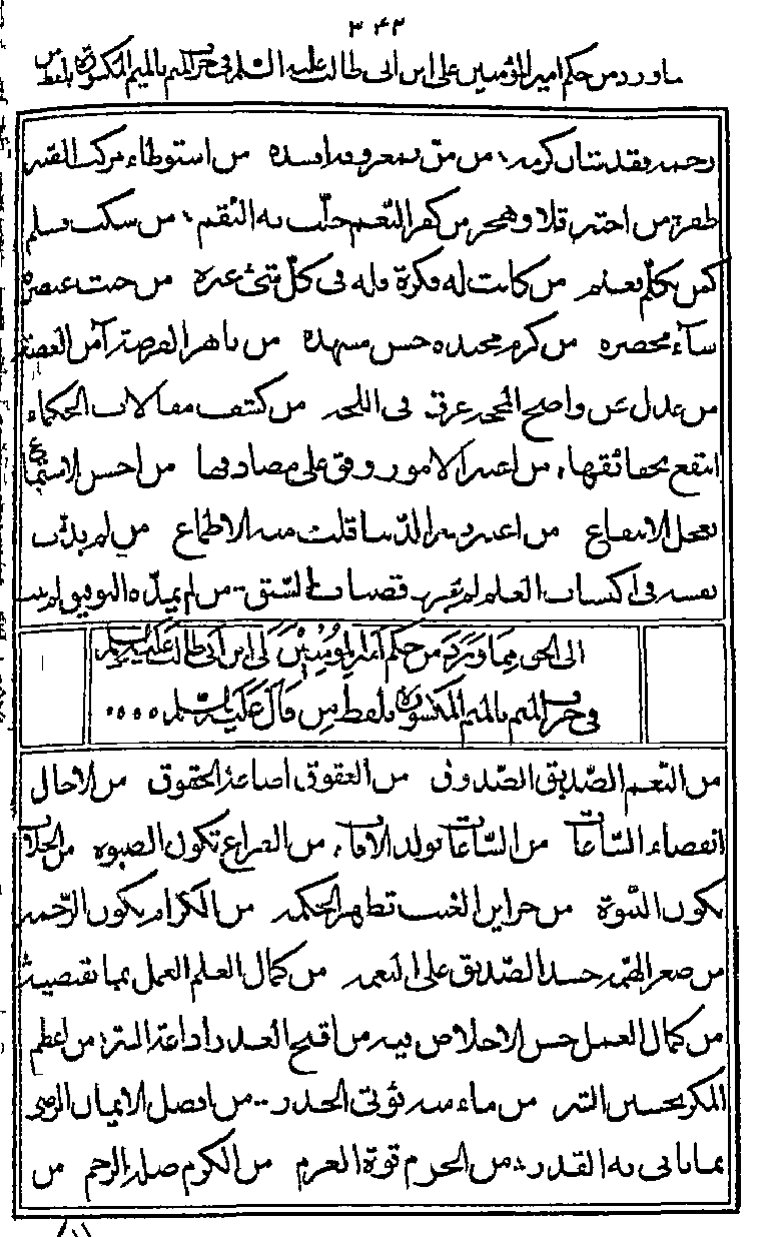 ٣٤٢
ماورد من حكم امير المؤمنين على ابن ابى طالب عليه السلم فى حرف الميم بالميم المكسورة بلفظ من
رحمه فقد شان كرمه من من بمعروفه افسده من استوطاء مركب الصبر
ظفر من اختبر قلا وهجر من كفر النعم حلت به النقم من سكت فسلم
كمن تكلم فغنم من كانت له فكرة فله فى كل شئ عبرة من خبث عنصره
ساء محضره من كرم محتده حسن مشهده من ناهز الفرصة آمن الغصة
من عدل عن واضح المحجة غرق فى اللجة من كشف مقالات الحكماء
انتفع بحقائقها من اعتبر الامور وقف على مصادقها من احسن الاستماع
تعجل الانتفاع من اعتبر بغير الدنيا قلت منه الاطماع من لم يدئب
نفسه فى اكتساب العلم لم يحرز قصبات السبق من لم يمده التوفيق لم ينب
الى الحق مما ورد من حكم امير المؤمنين على ابن ابى طالب عليه السلم
فى حرف الميم بالميم المكسورة بلفظ من قال عليه السلم
من النعم الصديق الصدوق من العقوق اضاعة الحقوق من الاجال
انقضاء الساعات من الساعات تولد الافات من الفراغ تكون الصبوة من الخلاف
تكون النبوة من خزاين الغيب تظهر الحكمة من الكرام يكون الرحمة
من صغر الهمة حسد الصديق على النعمة من كمال العلم العمل بما يقتضيه
من كمال العمل حسن الاخلاص فيه من اقبح الغدر اذاعة السر من اعظم
المكر تحسين الشر من مامنه يؤتى الحذر من افضل الايمان الرضى
بما ياتى به القدر من الحزم قوة العزم من الكرم صلة الرحم من